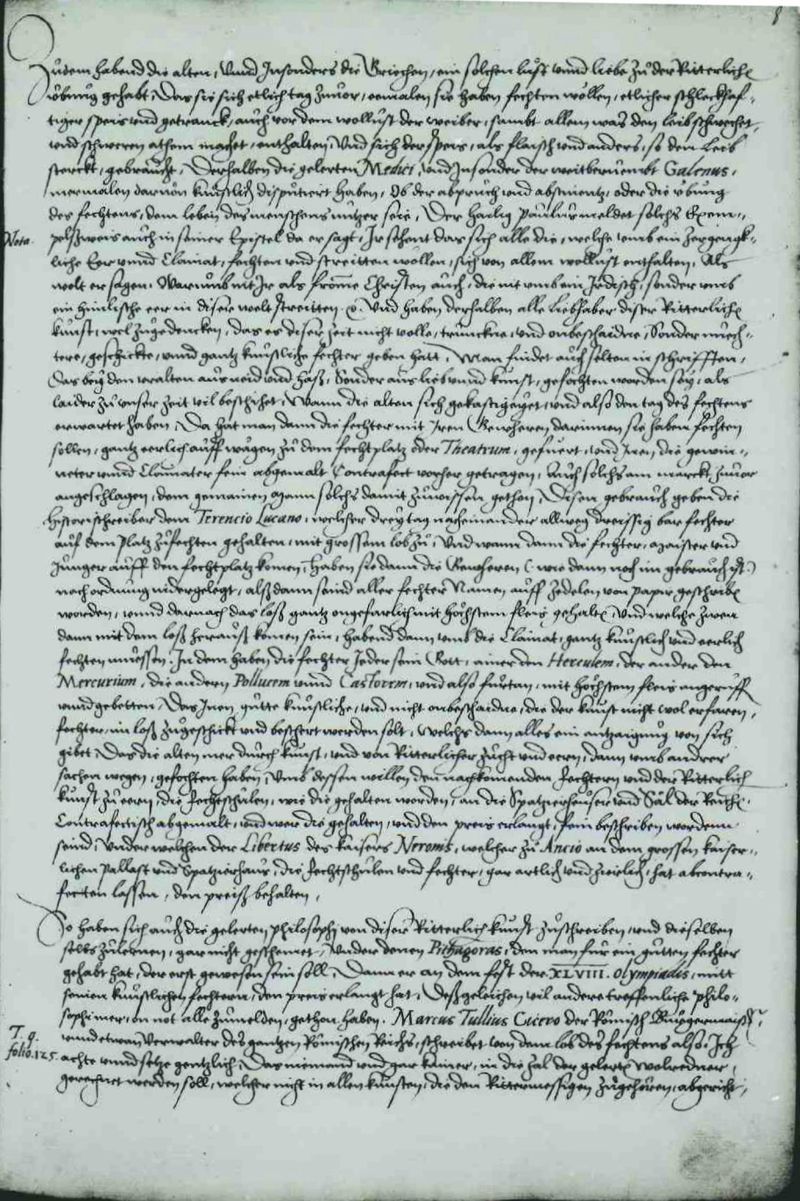 8
Zudem habend die alten, Unnd Insonders die Griechen, ein solchen lust unnd liebe zu der Ritterlichen
übung gehabt, Das sie sich etlich tag zuvor, eemalen sie haben fechten wöllen, etlicher schleckhaf-
tiger speis und getranck, auch vor dem wollust der weiber, sambt allem was den leib schwechet,
und schweren athem machet, enthalten, Und sich der speis, als flaisch und anders, so den Leib
sterckt, gebraucht, Derhalben die gelerten Medici, und Insonder der weitberüembt Galenus,
mermalen darvon künstlich disputiert haben, Ob der abpruch und abstinentz, oder die übung
des fechtens, dem leben des menschens nützer seie, Der heilig Paulus meldet solchs Exem-
Nota.
pelsweis auch in seiner Epistel da er sagt, Ir sehent das sich alle die, welche umb ein zergengk-
liche Eer unnd Clainat, fechten und streitten wollen, sich von allem wollust enthalten, Als
wolt er sagen, Warumb mit Ir als fromme Christen auch, die nit umb ein Irdisch, sonder umb
ein himlische eer in diser welt streitten. Und haben derhalben alle Liebhaber diser Ritterlichen
kunst, wol zugedencken, das es diser zeit nicht volle, trunckne, und onbeschaidne, Sonder nüech-
tere, geschickte, unnd gantz künstliche fechter geben hatt, Man findet auch selten in schrifften,
Das bey den uralten aus neid und haß, Sonder aus lieb unnd kunst, gefochten worden sey, als
laider zu unser zeit vil beschihet, Wann die alten sich gekastigeyet, und also den tag des fechtens
erwartet haben, Da hat man dann die fechter mit Iren Gewheren darinnen sie haben fechten
sollen, gantz eerlich auff wägen zu dem fechtplatz oder Theatrum, gefüert, und Inen die gewin-
neter unnd Clainater fein abgemalt Contrafect vorher getragen, Auch solchs am marckt zuvor
angeschlagen, dem gemainen Mann solchs damit zuwissen gethon, Disen gebrauch geben die
historischreiber dem Terencio Lucano, welcher drey tag nacheinander allweg dreissig bar fechter
auf dem Platz zufechten gehalten, mit grossem lob zu, Und wann dann die fechter, Maister und
Junger auff den fechtplatz komen, Haben sie dann die Geweheren (wie dann noch im gebrauch ist)
nach ordnung nidergelegt, alß dann seind aller fechter Namen, auff Zedelen von papir geschriben
worden, unnd darnach das loß gantz ongefarlich mit höchstem fleis gehalten, Und welche zwen
dann mit dem loß heraus komen sein, habend dann umb die Clainat, gantz künstlich und eerlich
fechten müessen. In dem haben die fechter Jeder sein Gott, ainer den Herculem, der ander den
Mercurium, die andern Pollucem unnd Castorem, und also furtan, mit höchstem fleis angerüfft
unnd gebetten, Das Inen gütte künstliche, und nicht onbeschaidne, die der kunst nicht wol erfaren,
fechter, im loß zugeschickt und beschert werden solt, Welchs dann alles ein antzaigung von sich
gibet, Das die alten mer durch kunst, und von Ritterlicher zucht und eern, dann umb andrer
sachen wegen, gefochten haben, Umb dessen willen den nachkumenden Fechtern und der Ritterlich
kunst zu eern, die Fechtschulen, wie die gehalten worden, an die Spatzierheuser und Säl der Reichen
Contrafectisch abgemalt, und wer die gehalten, und den preis erlangt, fein beschriben worden
seind, Under welchen der Libertus des kaisers Neronis, welcher zu Ancio an dem grossen kaiser-
lichen Pallast und Spatzierhaus, die Fechtschulen und fechter, gar artlich und zierlich, hat abcontra-
fecten lassen, den preiß behalten,
So haben sich auch die gelerten philosophi von diser Ritterlich kunst zuschreiben, und dieselben
selbs zulernen, gar nicht geschemet, Under denen Pithagoras, den man für ein gütten fechter
gehabt hat, der erst gewesen sein soll, Dann er an dem fest der XLVIII. olympiadis, mitt
seinen künstlichen fechtern, den preis erlangt hat, Desgleichen vil andere treffenliche philo-
sophi mer, on not alle zumelden, gethon haben. Marcus Tullius Cicero der Römisch Bürgermaister,
T. q.
folio.125.
unnd etwan Verwalter des gantzen Römischen Reichs, schreibet von dem lob des fechtens also, Ich
achte unnd setze gentzlich, Das niemand und gar kainer, in die zal der gelerten wolredner,
gerechnet werden soll, welcher nicht in allen künsten, die den Rittermessigen zugehören, abgericht,